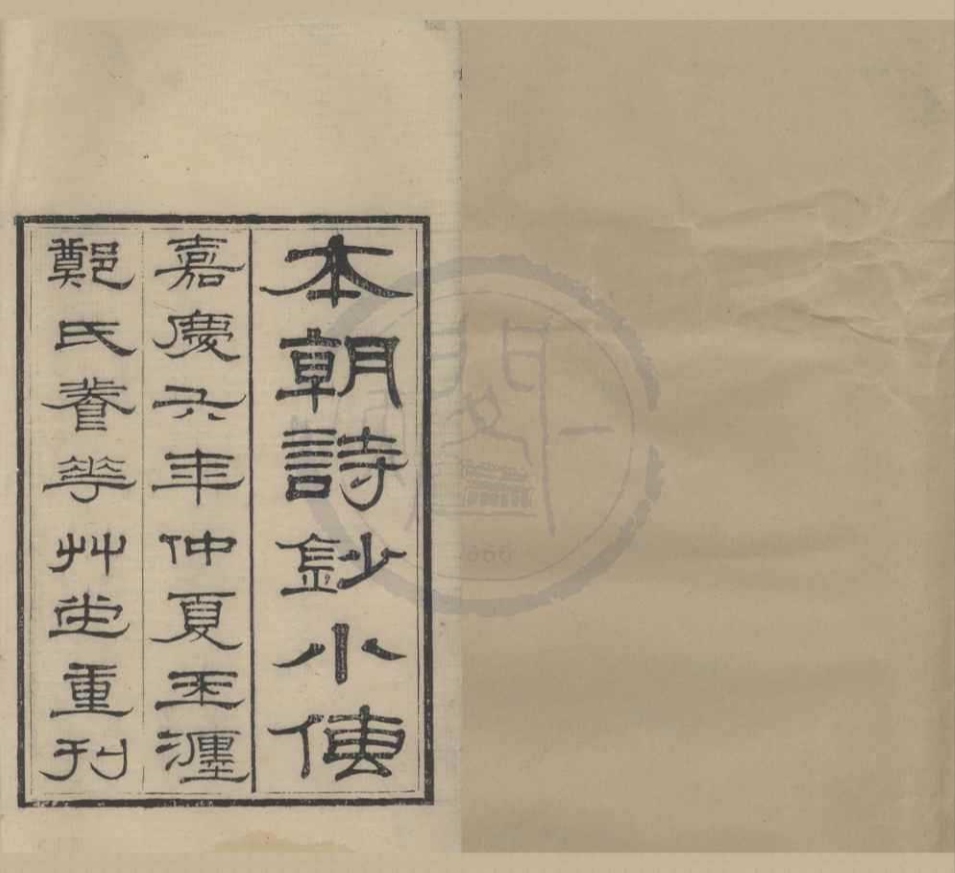 本朝詩鈔小傳
嘉慶六年仲夏玉瀍
鄭氏眷華艸堂重刊